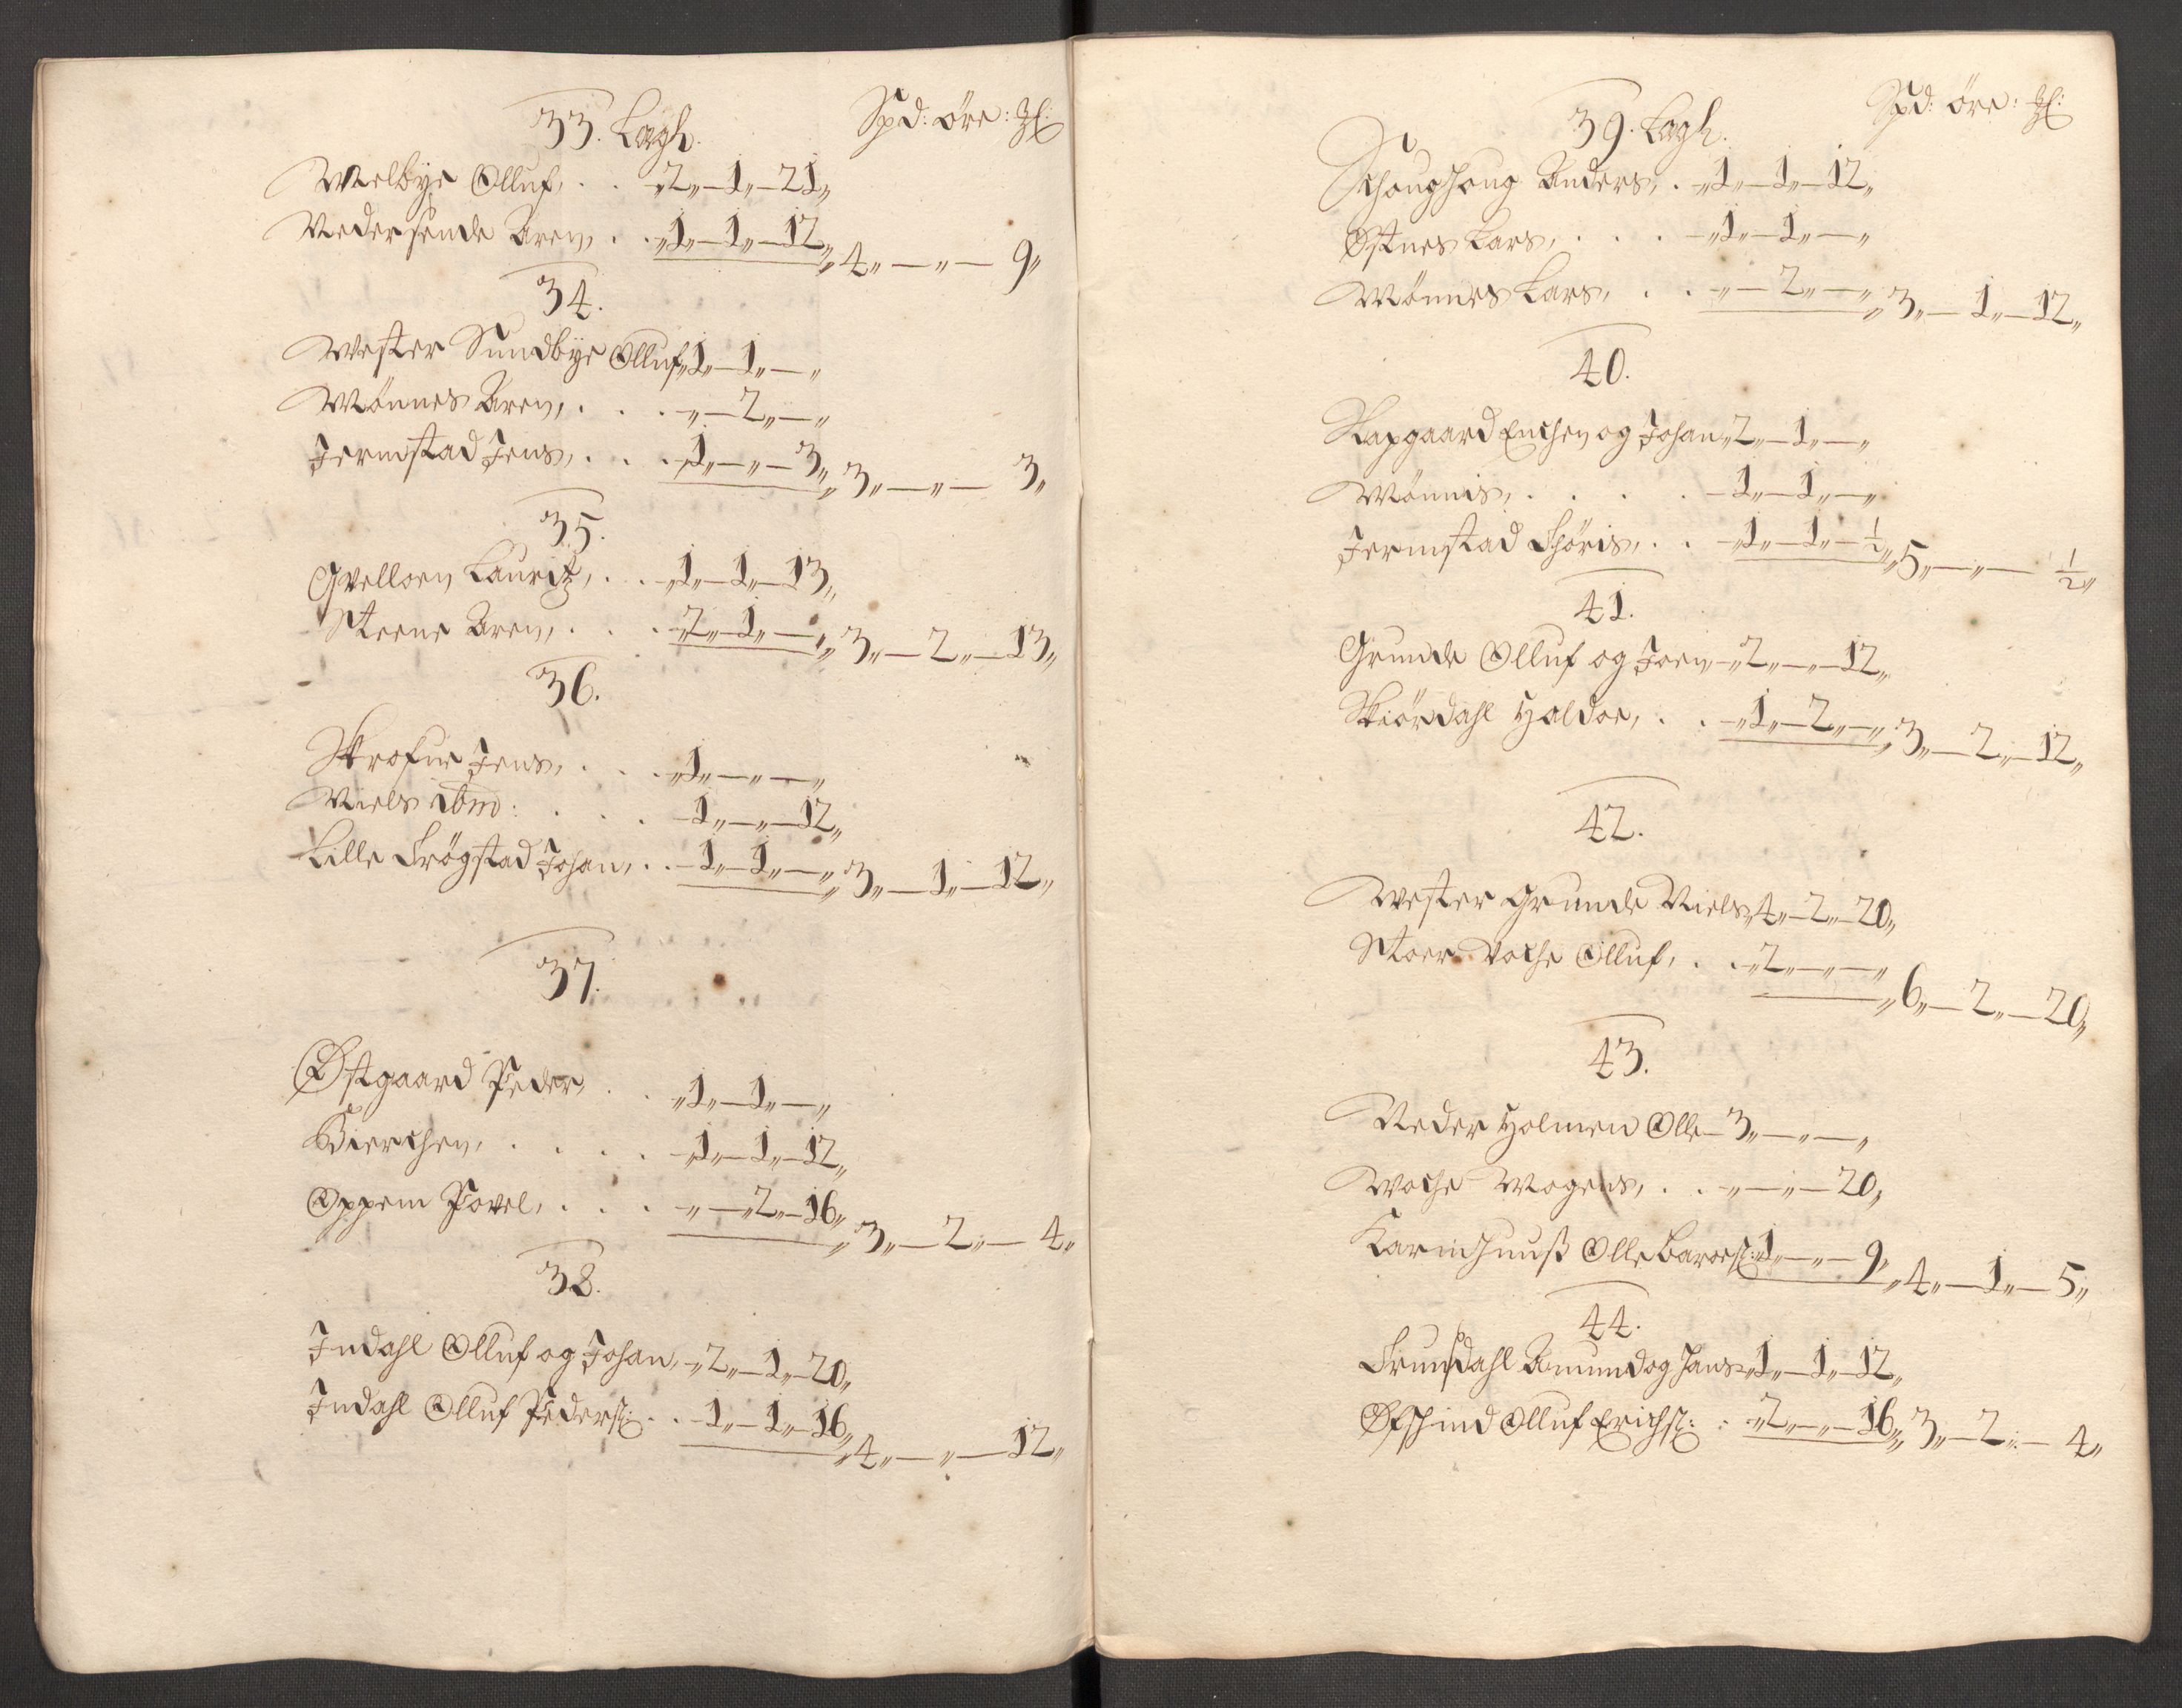 33. Lagh. Spd: öre: ℔:
Melbye Olluf, . . „2„—1„—21„
Nedersende Aren, . . „1„—1„—12„ „4„—„— 9„
34.
Wester Sundbye Olluf „1„—1„—„
Mönnes Aren, . . . „—2„—„
Jermstad Jens, . . . „1„—„—3„ „3„—„— 3„
35.
Qvelloen Lauritz, . . „1„—1„—13„
Steene Aren, . . . „2„—1„—„ „3„—2„—13„
36.
Skrofue Jens, . . . „1„—„—„
Niels ibm: . . . 1„—„—12„
Lille Frögstad Johan, . . 1„—1„—„ „3„—1„—12„
37.
Østgaard Peder, . . „1„—1„—„
Bierchen, . . . . „1„—1„—12„
Oppem Povel, . . . „—„2„—16„ „3„—2„— 4„
38.
Indahl Olluf og Johan, „2„—1„—20„
Indahl Olluf Peders: . . 1„—1„—16„ „4„—„—12„
39. Lagh. Spd: öre: ℔:
Schoughoug Anders, . „1„—1„—12„
Østnes Lars, . . . „1„—1„—„
Mönnes Lars, . . „—2„—„ „3„—1„—12„
40.
Rapgaard Enchen og Johan „2„—1„—„
Mönnis, . . . . 1„—1„—„
Jermstad Thöris, . . „1„—1„—½„ „5„—„— ½„
41.
Grunde Olluf og Joen „2„—„—12„
Skiördahl Haldor, . . „1„—2„—„ „3„—2„—12„
42.
Wester Grunde Niels „4„—2„—20„
Stoer Voche Olluf, . . „2„—„—„
„6„—2„—20„
43.
Neder Holmen Olle 3„—„—„
Woche Mogens, . . „—„—20„
Karmhuuß Olle Baroes: „1„—„—9„ „4„—1„—5„
44.
Trunsdahl Amund og Hans „1„—1„—12„
Olluf Erichs: . „2„—„—16„ „3„—2„—4„